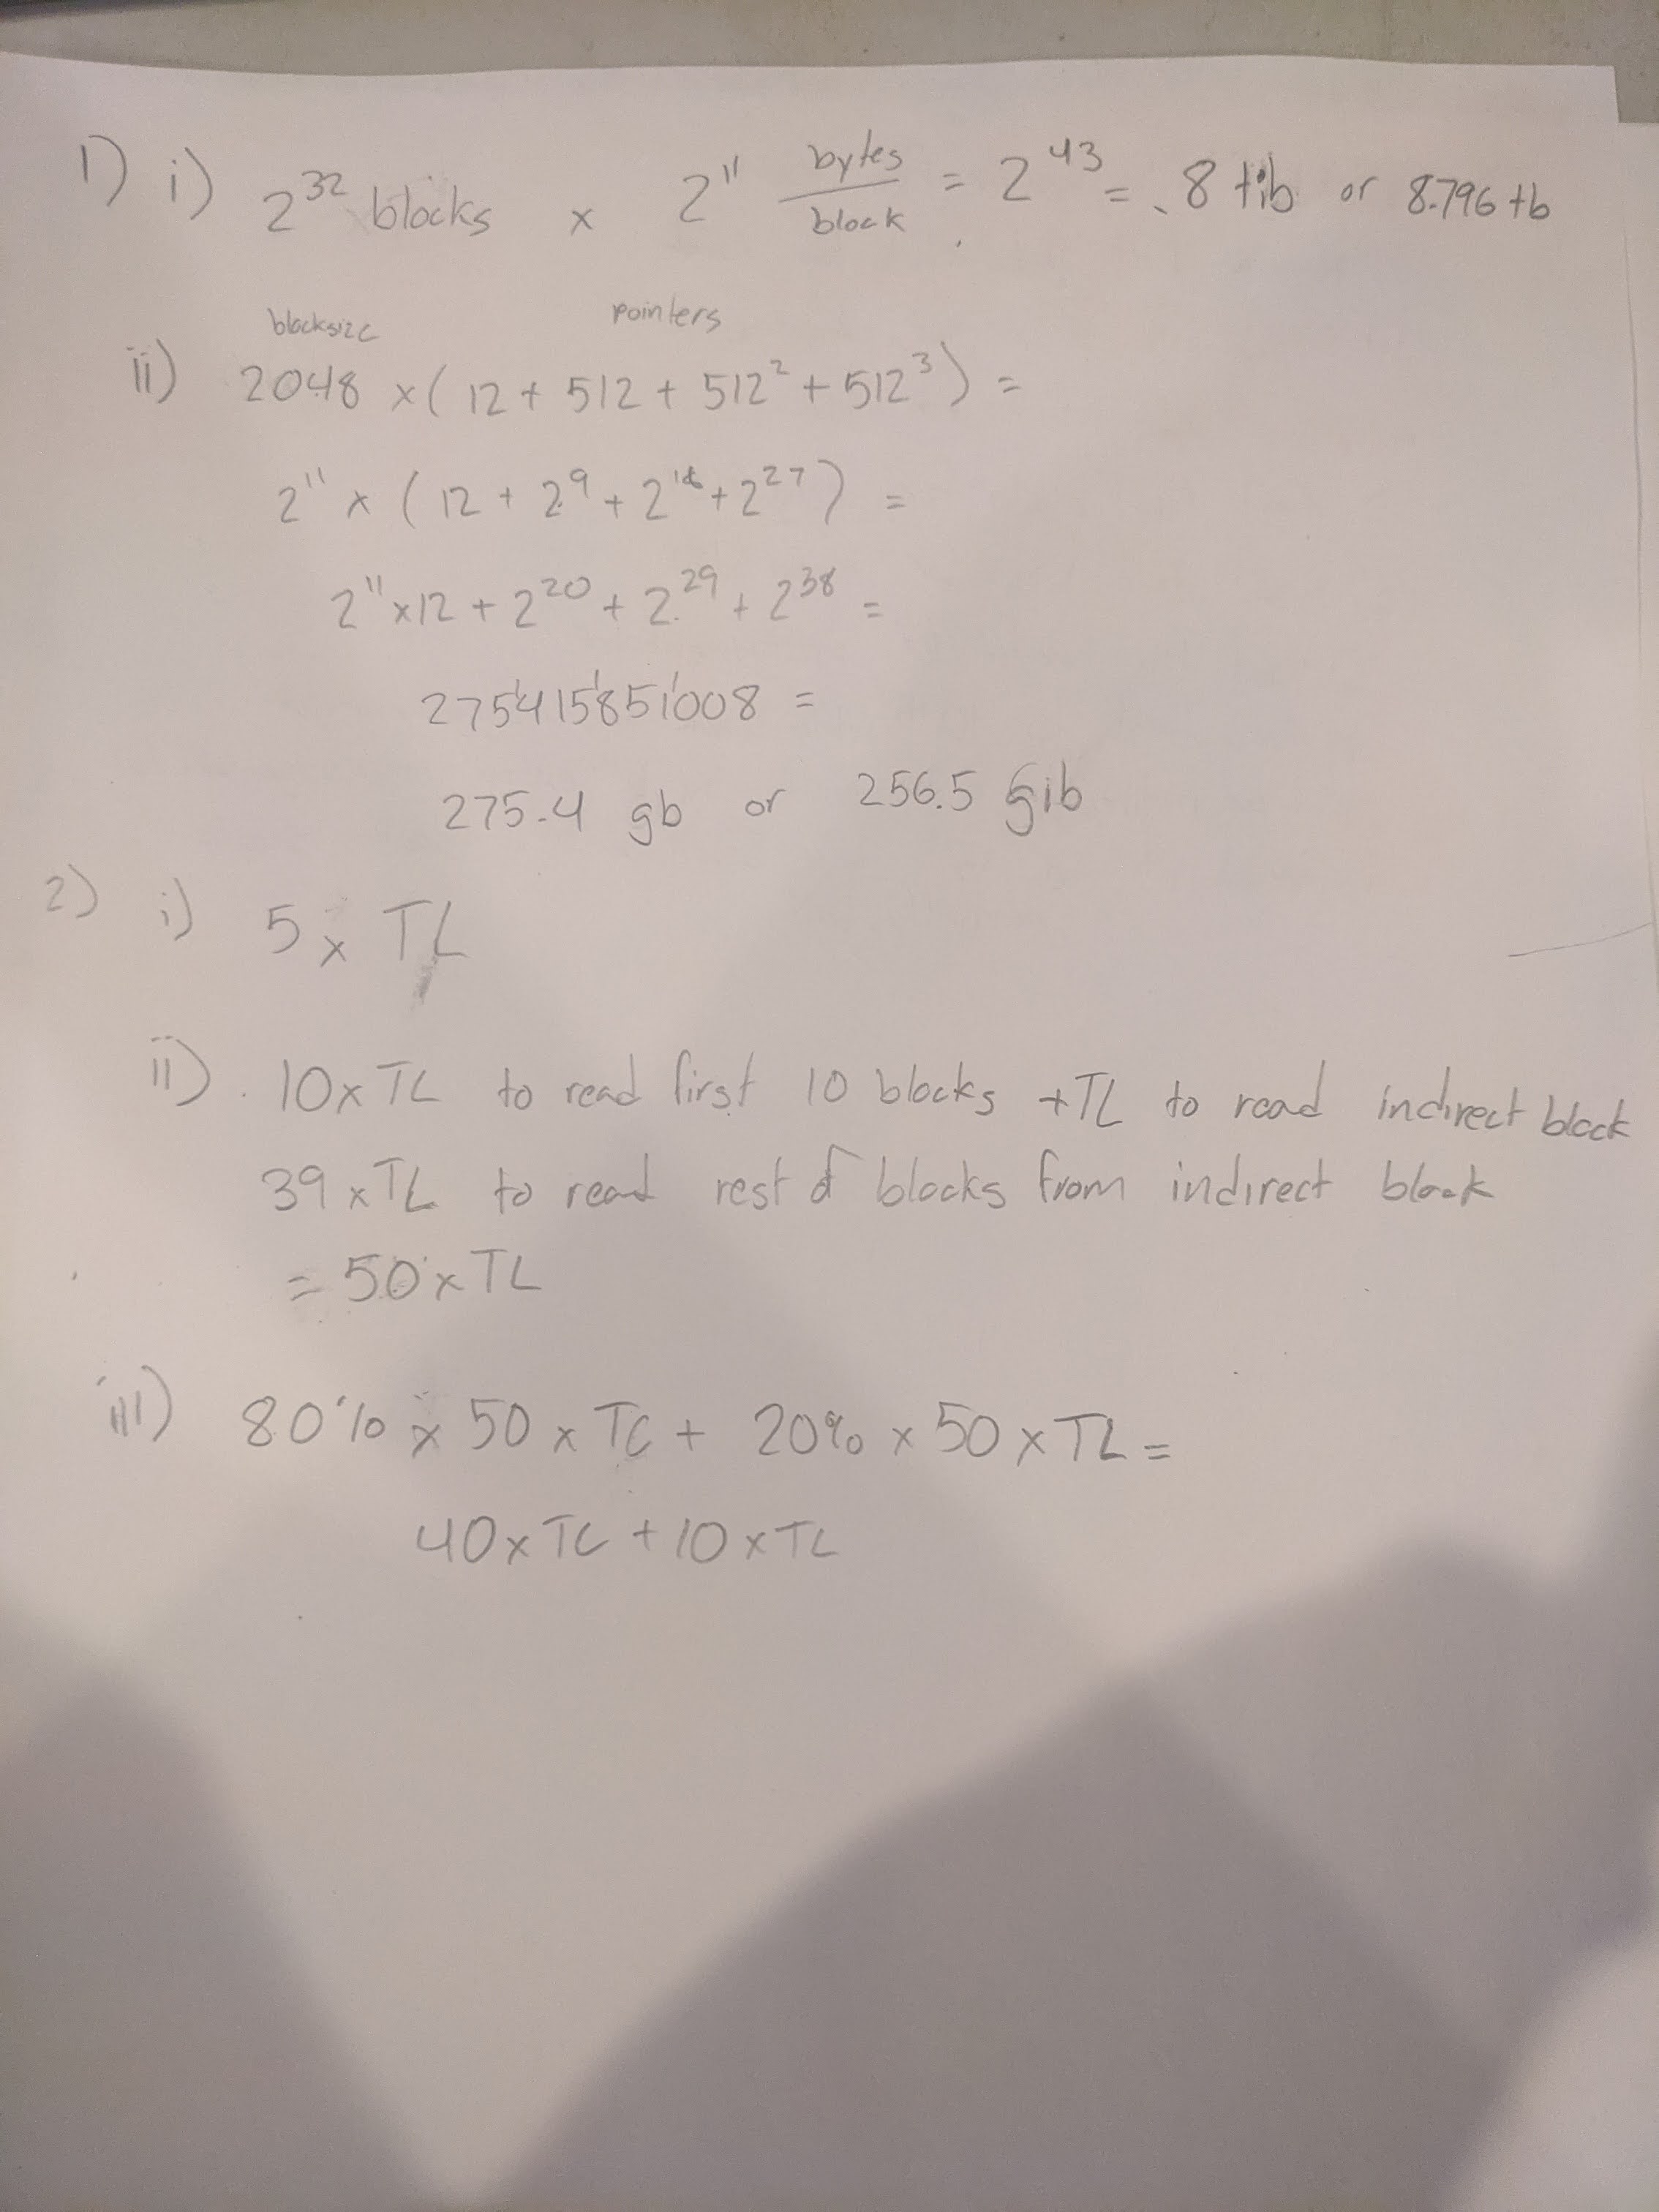 1) i) 2^32 blocks x 2^11 bytes/block = 2^43 = 8 tib or 8.796 tb
blocksize pointers
ii) 2048 x ( 12 + 512 + 512^2 + 512^3 ) =
2^11 x ( 12 + 2^9 + 2^18 + 2^27 ) =
2^11 x 12 + 2^20 + 2^29 + 2^38 =
275'415'851'008 =
275.4 gb or 256.5 Gib
2) i) 5 x TL
ii) 10 x TL to read first 10 blocks + TL to read indirect block
39 x TL to read rest of blocks from indirect block
= 50 x TL
iii) 80% x 50 x TC + 20% x 50 x TL =
40 x TC + 10 x TL